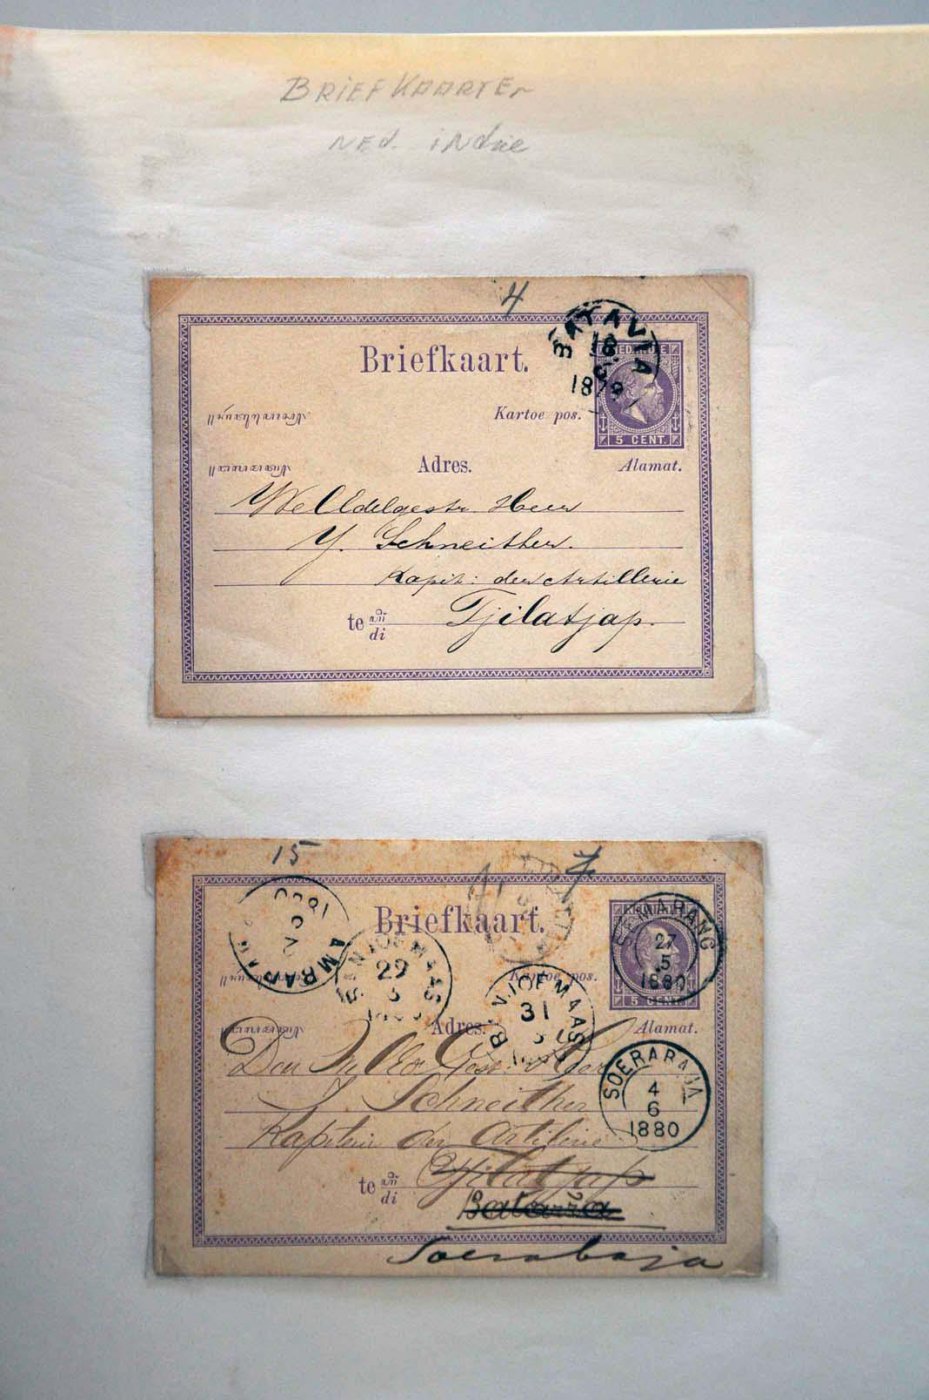 BRIEFKAARTEN
NED. INDIE
4
BATAVIA
18
5
187
Briefkaart.
NED. INDIE
Kartoe pos.
5 CENT.
Adres.
Alamat.
WelEdelgestr Heer
Y. Schneither.
Kapit: der Artillerie
te
di
Tjilatjap.
15
Briefkaart.
SEMARANG
27
5
1880
5 CENT.
AMBARAWA
BANJOEMAAS
29
5
Kartoe pos.
BANJOEMAAS
31
5
Adres.
Alamat.
Den
Heer
SOERABAJA
4
6
1880
Schneither
Kapitein der Artillerie
te
di
Tjilatjap
Batavia
Soerabaja